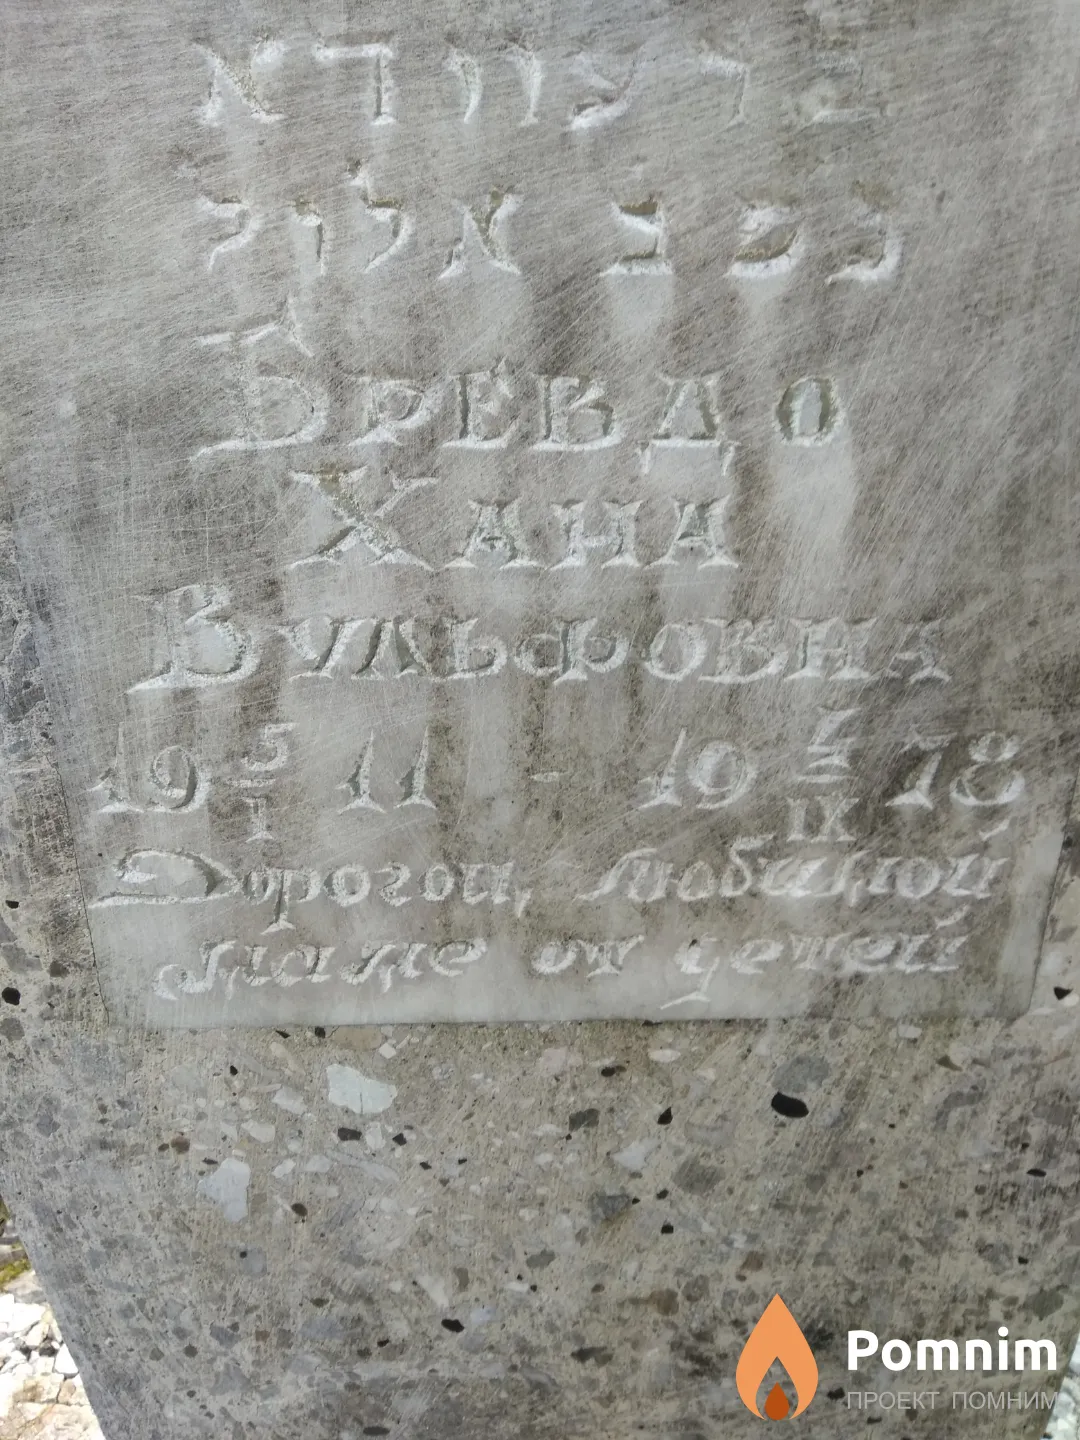 ברעוודא
נפ ב אלול
Бревдо
Хана
Вульфовна
19 5/I 11 - 19 4/IX 78
Дорогой, любимой
маме от детей
Pomnim
ПРОЕКТ ПОМНИМ